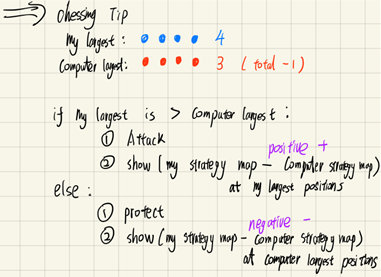 Chessing Tip
My largest : 4
Computer largest : 3 ( total -1 )
if My largest is > Computer largest :
① Attack
positive +
② show ( my strategy map - Computer strategy map )
at my largest positions
else :
① protect
negative -
② show ( my strategy map - Computer strategy map )
at Computer largest positions